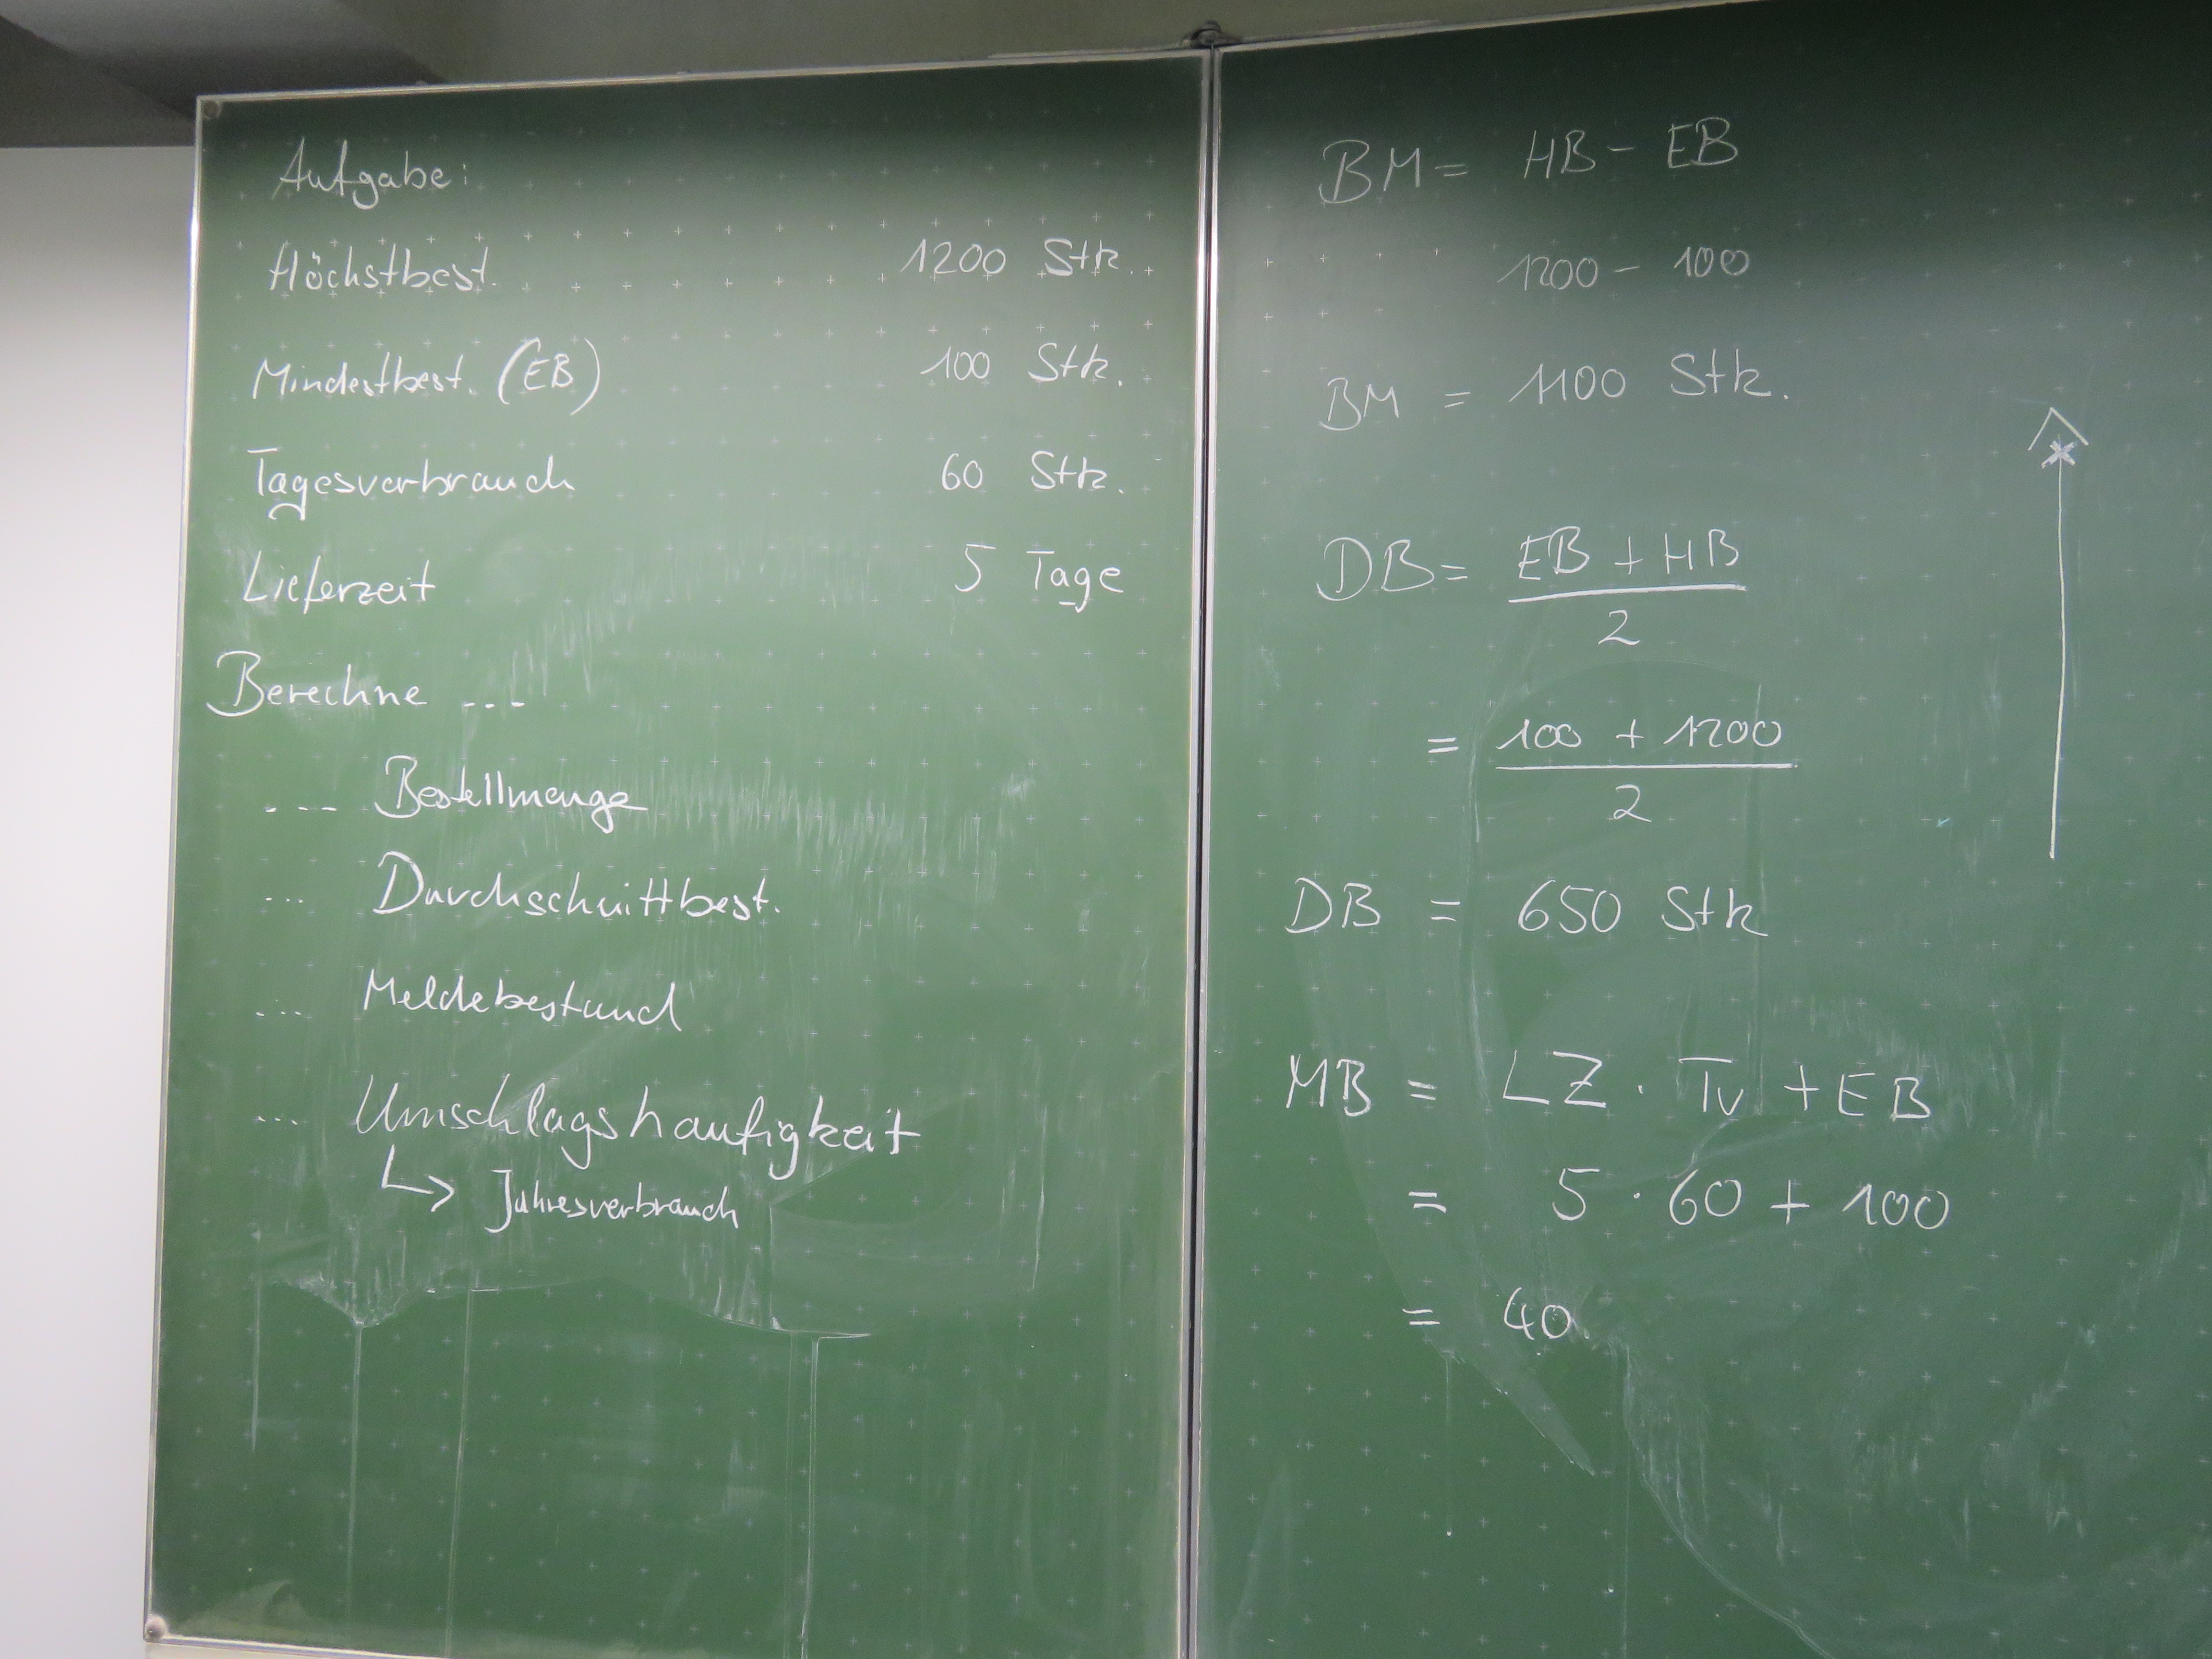 Aufgabe:
Höchstbest. 1200 Stk.
Mindestbest. (EB) 100 Stk.
Tagesverbrauch 60 Stk.
Lieferzeit 5 Tage
Berechne ...
... Bestellmenge
... Durchschnittbest.
... Meldebestand
... Umschlagshäufigkeit
↳ Jahresverbrauch
BM = HB - EB
1200 - 100
BM = 1100 Stk.
DB = EB + HB
2
= 100 + 1200
2
DB = 650 Stk
MB = LZ · Tv + EB
= 5 · 60 + 100
= 40